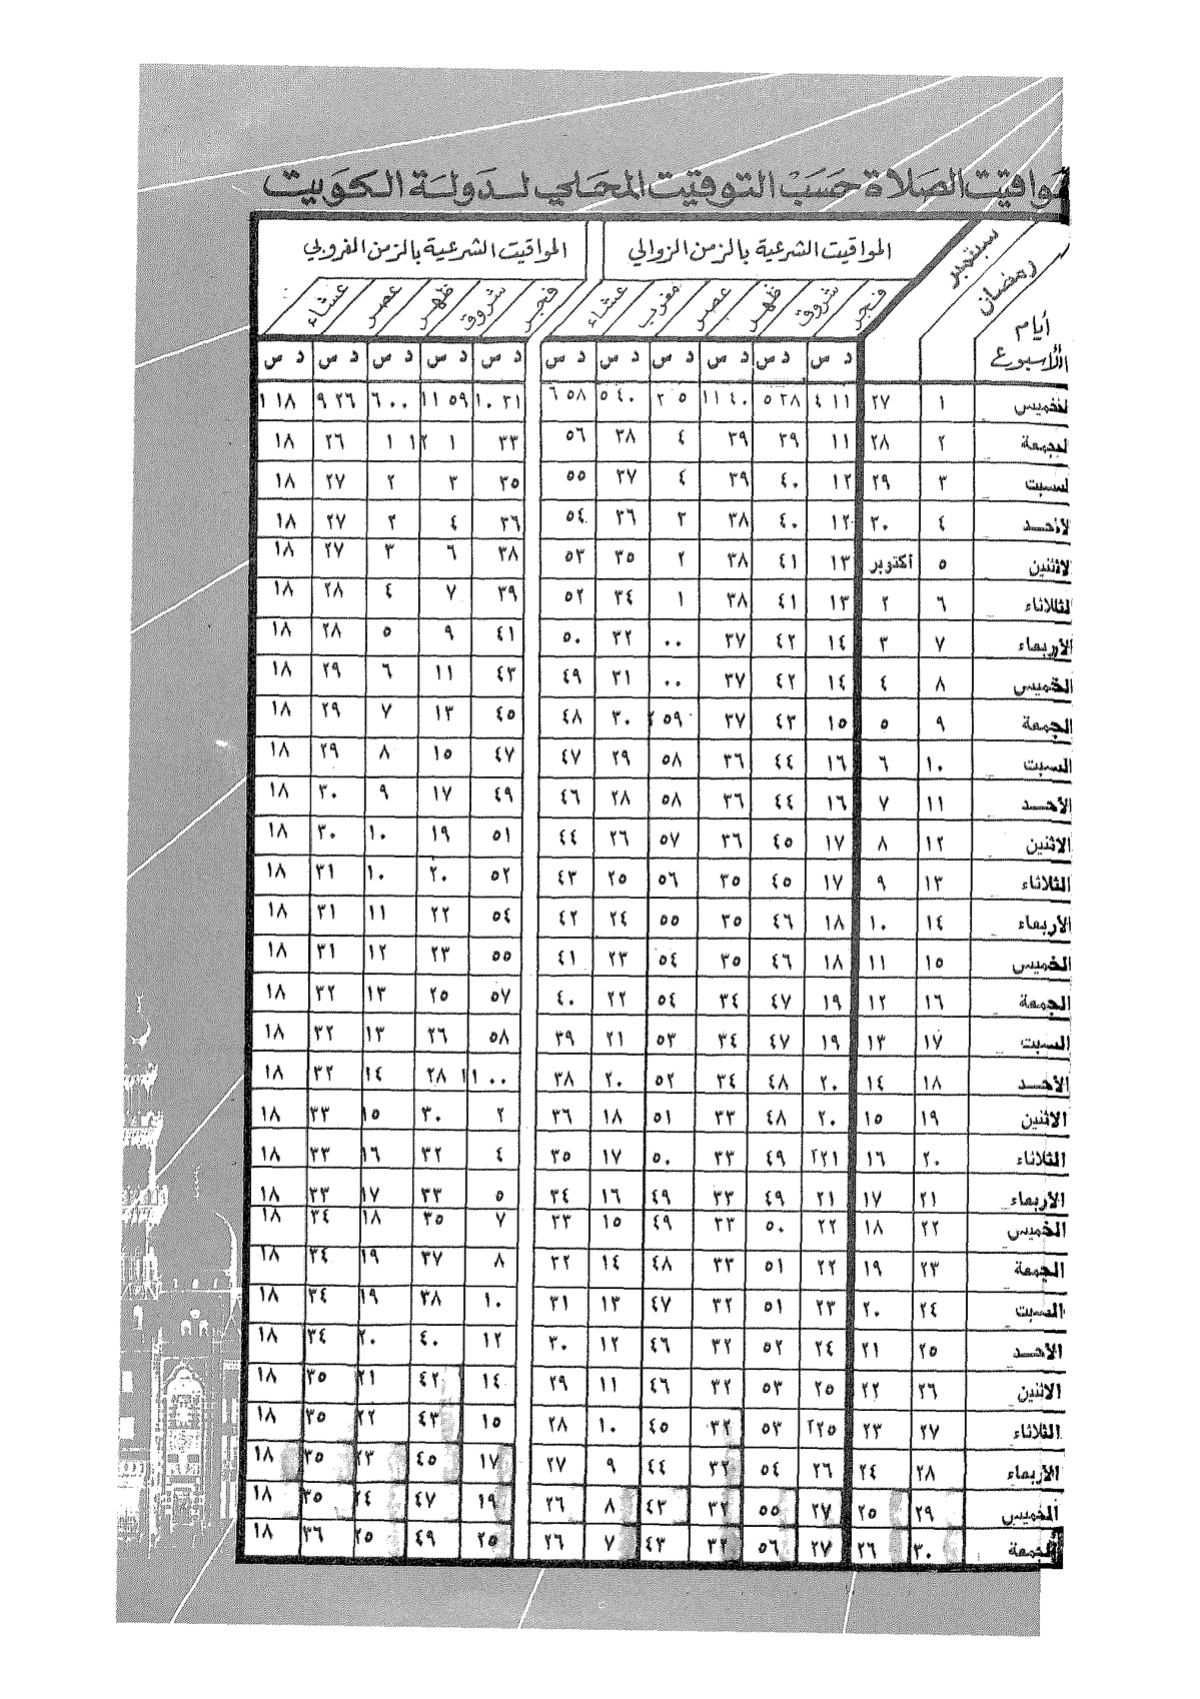 مواقيت الصلاة حسب التوقيت المحلي لدولة الكويت
المواقيت الشرعية بالزمن الزوالي المواقيت الشرعية بالزمن الغروبي
أيام الأسبوع رمضان سبتمبر فجر شروق ظهر عصر مغرب عشاء فجر شروق ظهر عصر عشاء
د س د س د س د س د س د س د س د س د س د س د س
الخميس ١ ٢٧ ٤ ١١ ٥ ٢٨ ١١ ٤٠ ٣ ٥ ٥ ٤٠ ٦ ٥٨ ١٠ ٣١ ١١ ٥٩ ٦ ٠٠ ٩ ٢٦ ١ ١٨
الجمعة ٢ ٢٨ ١١ ٢٩ ٣٩ ٤ ٣٨ ٥٦ ٣٣ ١ ١٢ ١ ٢٦ ١٨
السبت ٣ ٢٩ ١٢ ٤٠ ٣٩ ٤ ٣٧ ٥٥ ٣٥ ٣ ٢ ٢٧ ١٨
الأحد ٤ ٣٠ ١٢ ٤٠ ٣٨ ٣ ٣٦ ٥٤ ٣٦ ٤ ٢ ٢٧ ١٨
الاثنين ٥ أكتوبر ١٣ ٤١ ٣٨ ٢ ٣٥ ٥٣ ٣٨ ٦ ٣ ٢٧ ١٨
الثلاثاء ٦ ٢ ١٣ ٤١ ٣٨ ١ ٣٤ ٥٢ ٣٩ ٧ ٤ ٢٨ ١٨
الأربعاء ٧ ٣ ١٤ ٤٢ ٣٧ ٠٠ ٣٢ ٥٠ ٤١ ٩ ٥ ٢٨ ١٨
الخميس ٨ ٤ ١٤ ٤٢ ٣٧ ٠٠ ٣١ ٤٩ ٤٣ ١١ ٦ ٢٩ ١٨
الجمعة ٩ ٥ ١٥ ٤٣ ٣٧ ٢ ٥٩ ٣٠ ٤٨ ٤٥ ١٣ ٧ ٢٩ ١٨
السبت ١٠ ٦ ١٦ ٤٤ ٣٦ ٥٨ ٢٩ ٤٧ ٤٧ ١٥ ٨ ٢٩ ١٨
الأحد ١١ ٧ ١٦ ٤٤ ٣٦ ٥٨ ٢٨ ٤٦ ٤٩ ١٧ ٩ ٣٠ ١٨
الاثنين ١٢ ٨ ١٧ ٤٥ ٣٦ ٥٧ ٢٦ ٤٤ ٥١ ١٩ ١٠ ٣٠ ١٨
الثلاثاء ١٣ ٩ ١٧ ٤٥ ٣٥ ٥٦ ٢٥ ٤٣ ٥٢ ٢٠ ١٠ ٣١ ١٨
الأربعاء ١٤ ١٠ ١٨ ٤٦ ٣٥ ٥٥ ٢٤ ٤٢ ٥٤ ٢٢ ١١ ٣١ ١٨
الخميس ١٥ ١١ ١٨ ٤٦ ٣٥ ٥٤ ٢٣ ٤١ ٥٥ ٢٣ ١٢ ٣١ ١٨
الجمعة ١٦ ١٢ ١٩ ٤٧ ٣٤ ٥٤ ٢٢ ٤٠ ٥٧ ٢٥ ١٣ ٣٢ ١٨
السبت ١٧ ١٣ ١٩ ٤٧ ٣٤ ٥٣ ٢١ ٣٩ ٥٨ ٢٦ ١٣ ٣٢ ١٨
الأحد ١٨ ١٤ ٢٠ ٤٨ ٣٤ ٥٢ ٢٠ ٣٨ ١١ ٠٠ ٢٨ ١٤ ٣٢ ١٨
الاثنين ١٩ ١٥ ٢٠ ٤٨ ٣٣ ٥١ ١٨ ٣٦ ٢ ٣٠ ١٥ ٣٣ ١٨
الثلاثاء ٢٠ ١٦ ٢١ ٤٩ ٣٣ ٥٠ ١٧ ٣٥ ٤ ٣٢ ١٦ ٣٣ ١٨
الأربعاء ٢١ ١٧ ٢١ ٤٩ ٣٣ ٤٩ ١٦ ٣٤ ٥ ٣٣ ١٧ ٣٣ ١٨
الخميس ٢٢ ١٨ ٢٢ ٥٠ ٣٣ ٤٩ ١٥ ٣٣ ٧ ٣٥ ١٨ ٣٤ ١٨
الجمعة ٢٣ ١٩ ٢٢ ٥١ ٣٣ ٤٨ ١٤ ٣٢ ٨ ٣٧ ١٩ ٣٤ ١٨
السبت ٢٤ ٢٠ ٢٣ ٥١ ٣٢ ٤٧ ١٣ ٣١ ١٠ ٣٨ ١٩ ٣٤ ١٨
الأحد ٢٥ ٢١ ٢٤ ٥٢ ٣٢ ٤٦ ١٢ ٣٠ ١٢ ٤٠ ٢٠ ٣٤ ١٨
الاثنين ٢٦ ٢٢ ٢٥ ٥٣ ٣٢ ٤٦ ١١ ٢٩ ١٤ ٤٢ ٢١ ٣٥ ١٨
الثلاثاء ٢٧ ٢٣ ٢٥ ٥٣ ٣٢ ٤٥ ١٠ ٢٨ ١٥ ٤٣ ٢٢ ٣٥ ١٨
الأربعاء ٢٨ ٢٤ ٢٦ ٥٤ ٣٢ ٤٤ ٩ ٢٧ ١٧ ٤٥ ٢٣ ٣٥ ١٨
الخميس ٢٩ ٢٥ ٢٧ ٥٥ ٣٢ ٤٣ ٨ ٢٦ ١٩ ٤٧ ٢٤ ٣٥ ١٨
الجمعة ٣٠ ٢٦ ٢٧ ٥٦ ٣٢ ٤٣ ٧ ٢٦ ٢٥ ٤٩ ٢٥ ٣٦ ١٨